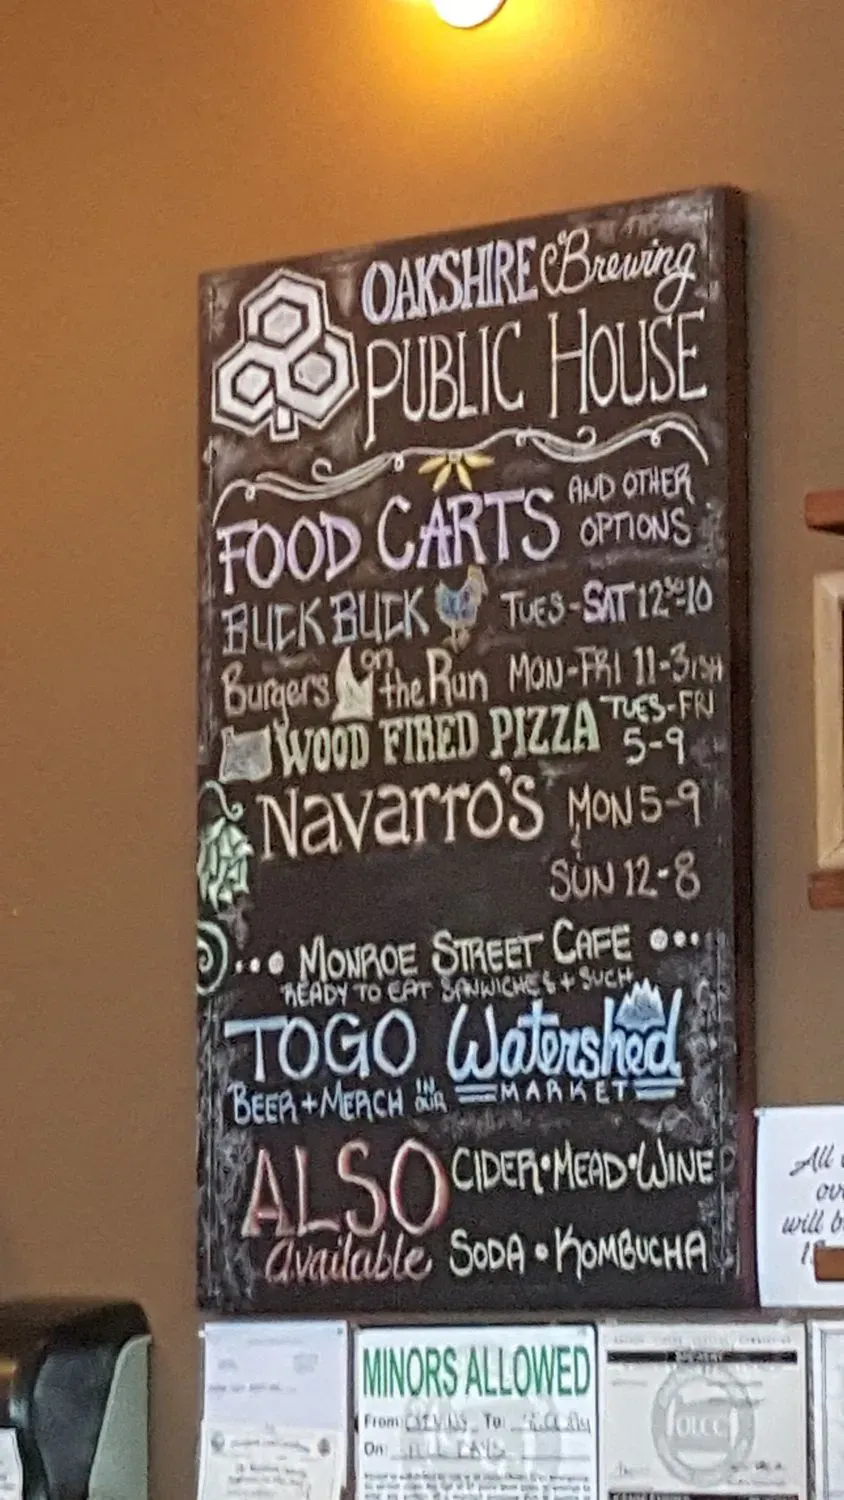 OAKSHIRE Brewing
PUBLIC HOUSE
FOOD CARTS AND OTHER OPTIONS
BUCK BUCK TUES-SAT 12³⁰-10
Burgers on the Run MON-FRI 11-3ISH
WOOD FIRED PIZZA TUES-FRI 5-9
Navarro's MON 5-9
& SUN 12-8
MONROE STREET CAFE
READY TO EAT SANWICHES + SUCH
TOGO Watershed
BEER+MERCH IN OUR MARKET
ALSO CIDER•MEAD•WINE
available SODA • KOMBUCHA
All
will b
MINORS ALLOWED
From: To:
On:
OLCC